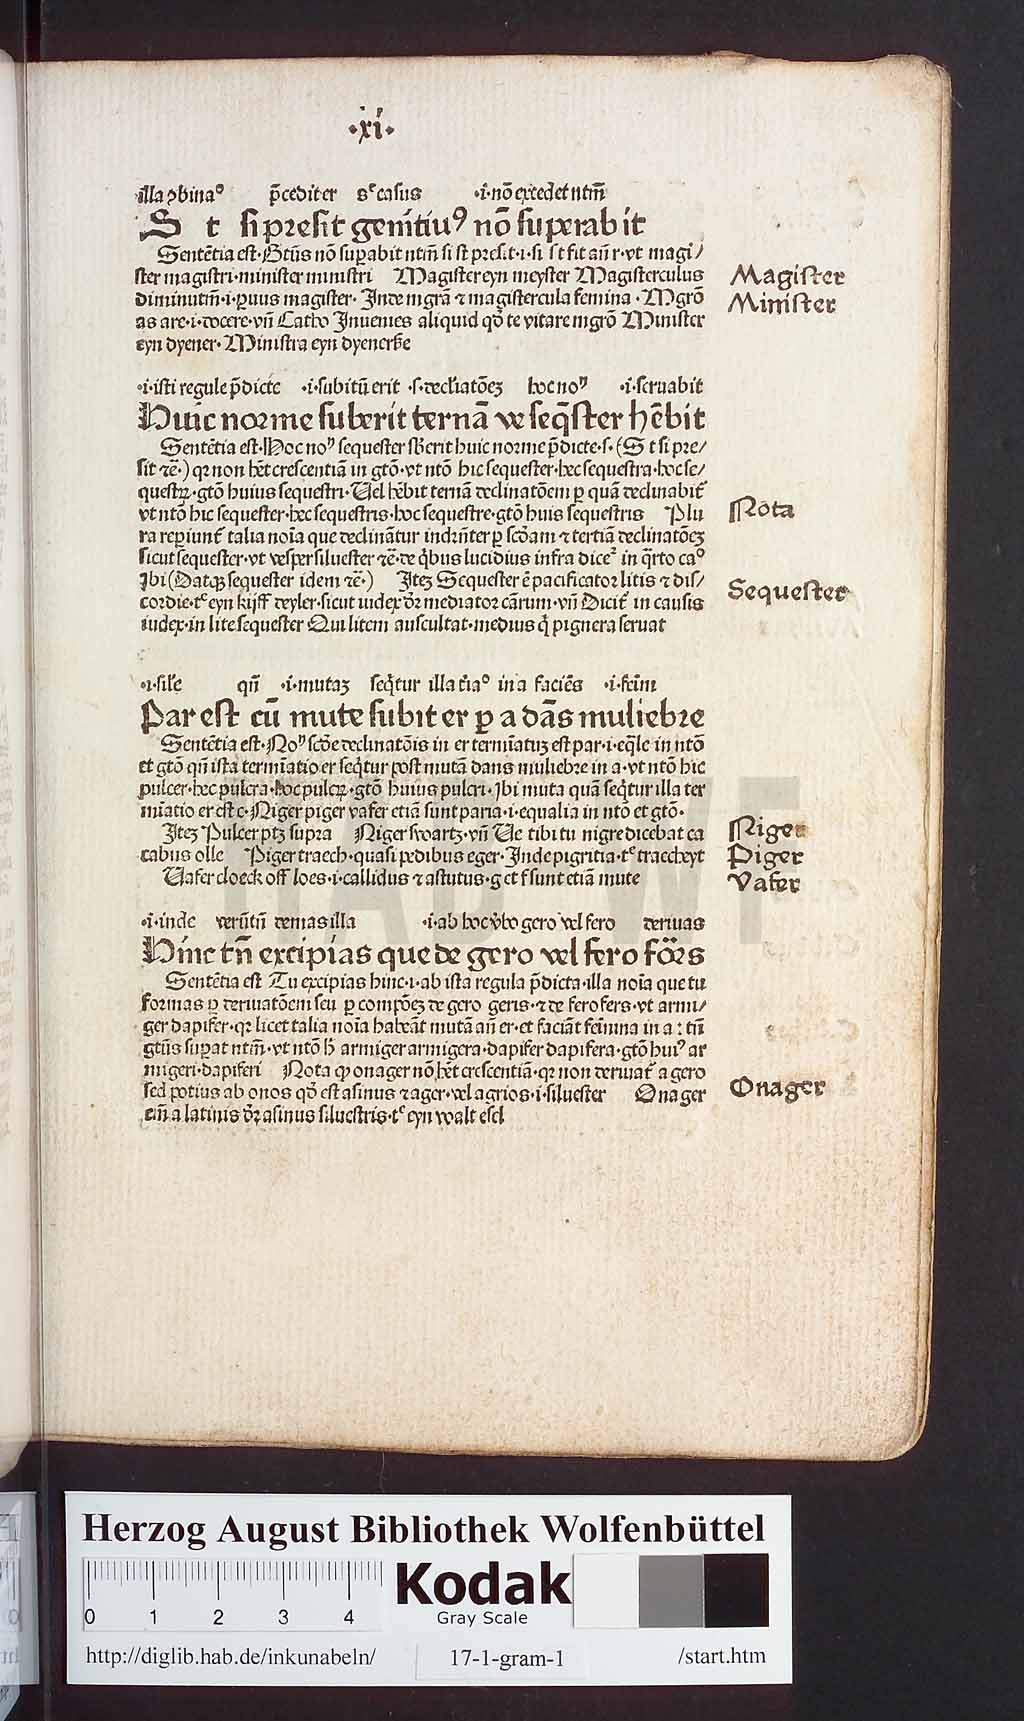 ·xi·
illa ↄbinaº p̄cedit er sᶜ casus ·i·nō excedet ntm̄
S t si presit genitiuꝰ nō superabit
Sentētia est·Gtūs nō suꝑabit ntm̄ si st presit·i·si st fit an̄ r·vt magi/
ster magistri·minister ministri Magister eyn meyster Magisterculus
diminutm̄·i·ꝑuus magister· Inde mgrā ⁊ magistercula femina·Mgrō
as are·i·docere·vn̄ Catho Inuenies aliquid qō te vitare mgrō Minister
eyn dyener·Ministra eyn dyenerſſe
·i·isti regule p̄dicte ·i·subitū erit ·s·decliatōeꝫ hoc noᵐ ·i·seruabit
Huic norme suberit ternā ve seq̄ster hēbit
Sentētia est·Hoc noᵐ sequester sb̄erit huic norme p̄dicte·s·(S t si pre/
sit ⁊ē·) qꝛ non hēt crescentiā in gtō·vt ntō hic sequester·hec sequestra·hoc se/
questꝝ·gtō huius sequestri·Uel hēbit ternā declinatōem ꝑ quā declinabit᷑
vt ntō hic sequester·hec sequestris·hoc sequestre·gtō huis sequestris Plu
ra reꝑiunt᷑ talia noīa que declinātur indrn̄ter ꝑ scd̄am ⁊ tertiā declinatōeꝫ
sicut sequester·vt vesper siluester ⁊ē·de q̄bus lucidius infra dice᷑ in q̄rto caº
Ibi (Datqꝫ sequester idem ⁊ē·) Iteꝫ Sequester ē pacificator litis ⁊ dis/
cordie·tᶜ eyn kijff deyler·sicut iudex dr̄ mediator cārum·vn̄ Dicit᷑ in causis
iudex·in lite sequester Qui litem auscultat·medius q̄ pignera seruat
·i·sil̄e qn̄ ·i·mutaꝫ seq̄tur illa t̄iaº in a faciēs ·i·fem̄
Par est cū mute subit er ꝑ a dās muliebre
Sentētia est·Noᵐ scd̄e declinatōis in er termīatuꝫ est par·i·eq̄le in ntō
et gtō qn̄ ista termīatio er seq̄tur post mutā dans muliebre in a·vt ntō hic
pulcer·hec pulcra·hoc pulcꝝ·gtō huius pulcri·Ibi muta quā seq̄tur illa ter
mīatio er est c·Niger piger vafer etiā sunt paria·i·equalia in ntō et gtō·
Iteꝫ Pulcer ptꝫ supra Niger swartz·vn̄ Ve tibi tu nigre dicebat ca
cabus olle Piger traech·quasi pedibus eger·Inde pigritia·tᶜ traecheyt
Uafer cloeck off loes·i·callidus ⁊ astutus·g et f sunt etiā mute
·i·inde verūtn̄ demas illa ·i·ab hoc v̄bo gero vel fero deriuas
Hinc tn̄ excipias que de gero vel fero fōrs
Sentētia est Tu excipias hinc·i·ab ista regula p̄dicta·illa noīa que tu
formas ꝑ deriuatōem seu ꝑ compōeꝫ de gero geris·⁊ de fero fers·vt armi/
ger dapifer·qꝛ licet talia noīa habeāt mutā an̄ er·et faciāt femīna in a : tn̄
gtūs suꝑat ntm̄·vt ntō h̄ armiger armigera·dapifer dapifera·gtō huiꝰ ar
migeri·dapiferi Nota ꝙ onager nō hēt crescentiā·qꝛ non deriuat᷑ a gero
sed potius ab onos qō est asinus ⁊ ager·vel agrios·i·siluester Onager
eīn a latinis dr̄ asinus siluestris·tᶜ eyn walt esel
Magister
Minister
Nota
Sequester
Niger
Piger
Vafer
Onager
HAB WF
Herzog August Bibliothek Wolfenbüttel
0 1 2 3 4
Kodak
Gray Scale
http://diglib.hab.de/inkunabeln/ 17-1-gram-1 /start.htm